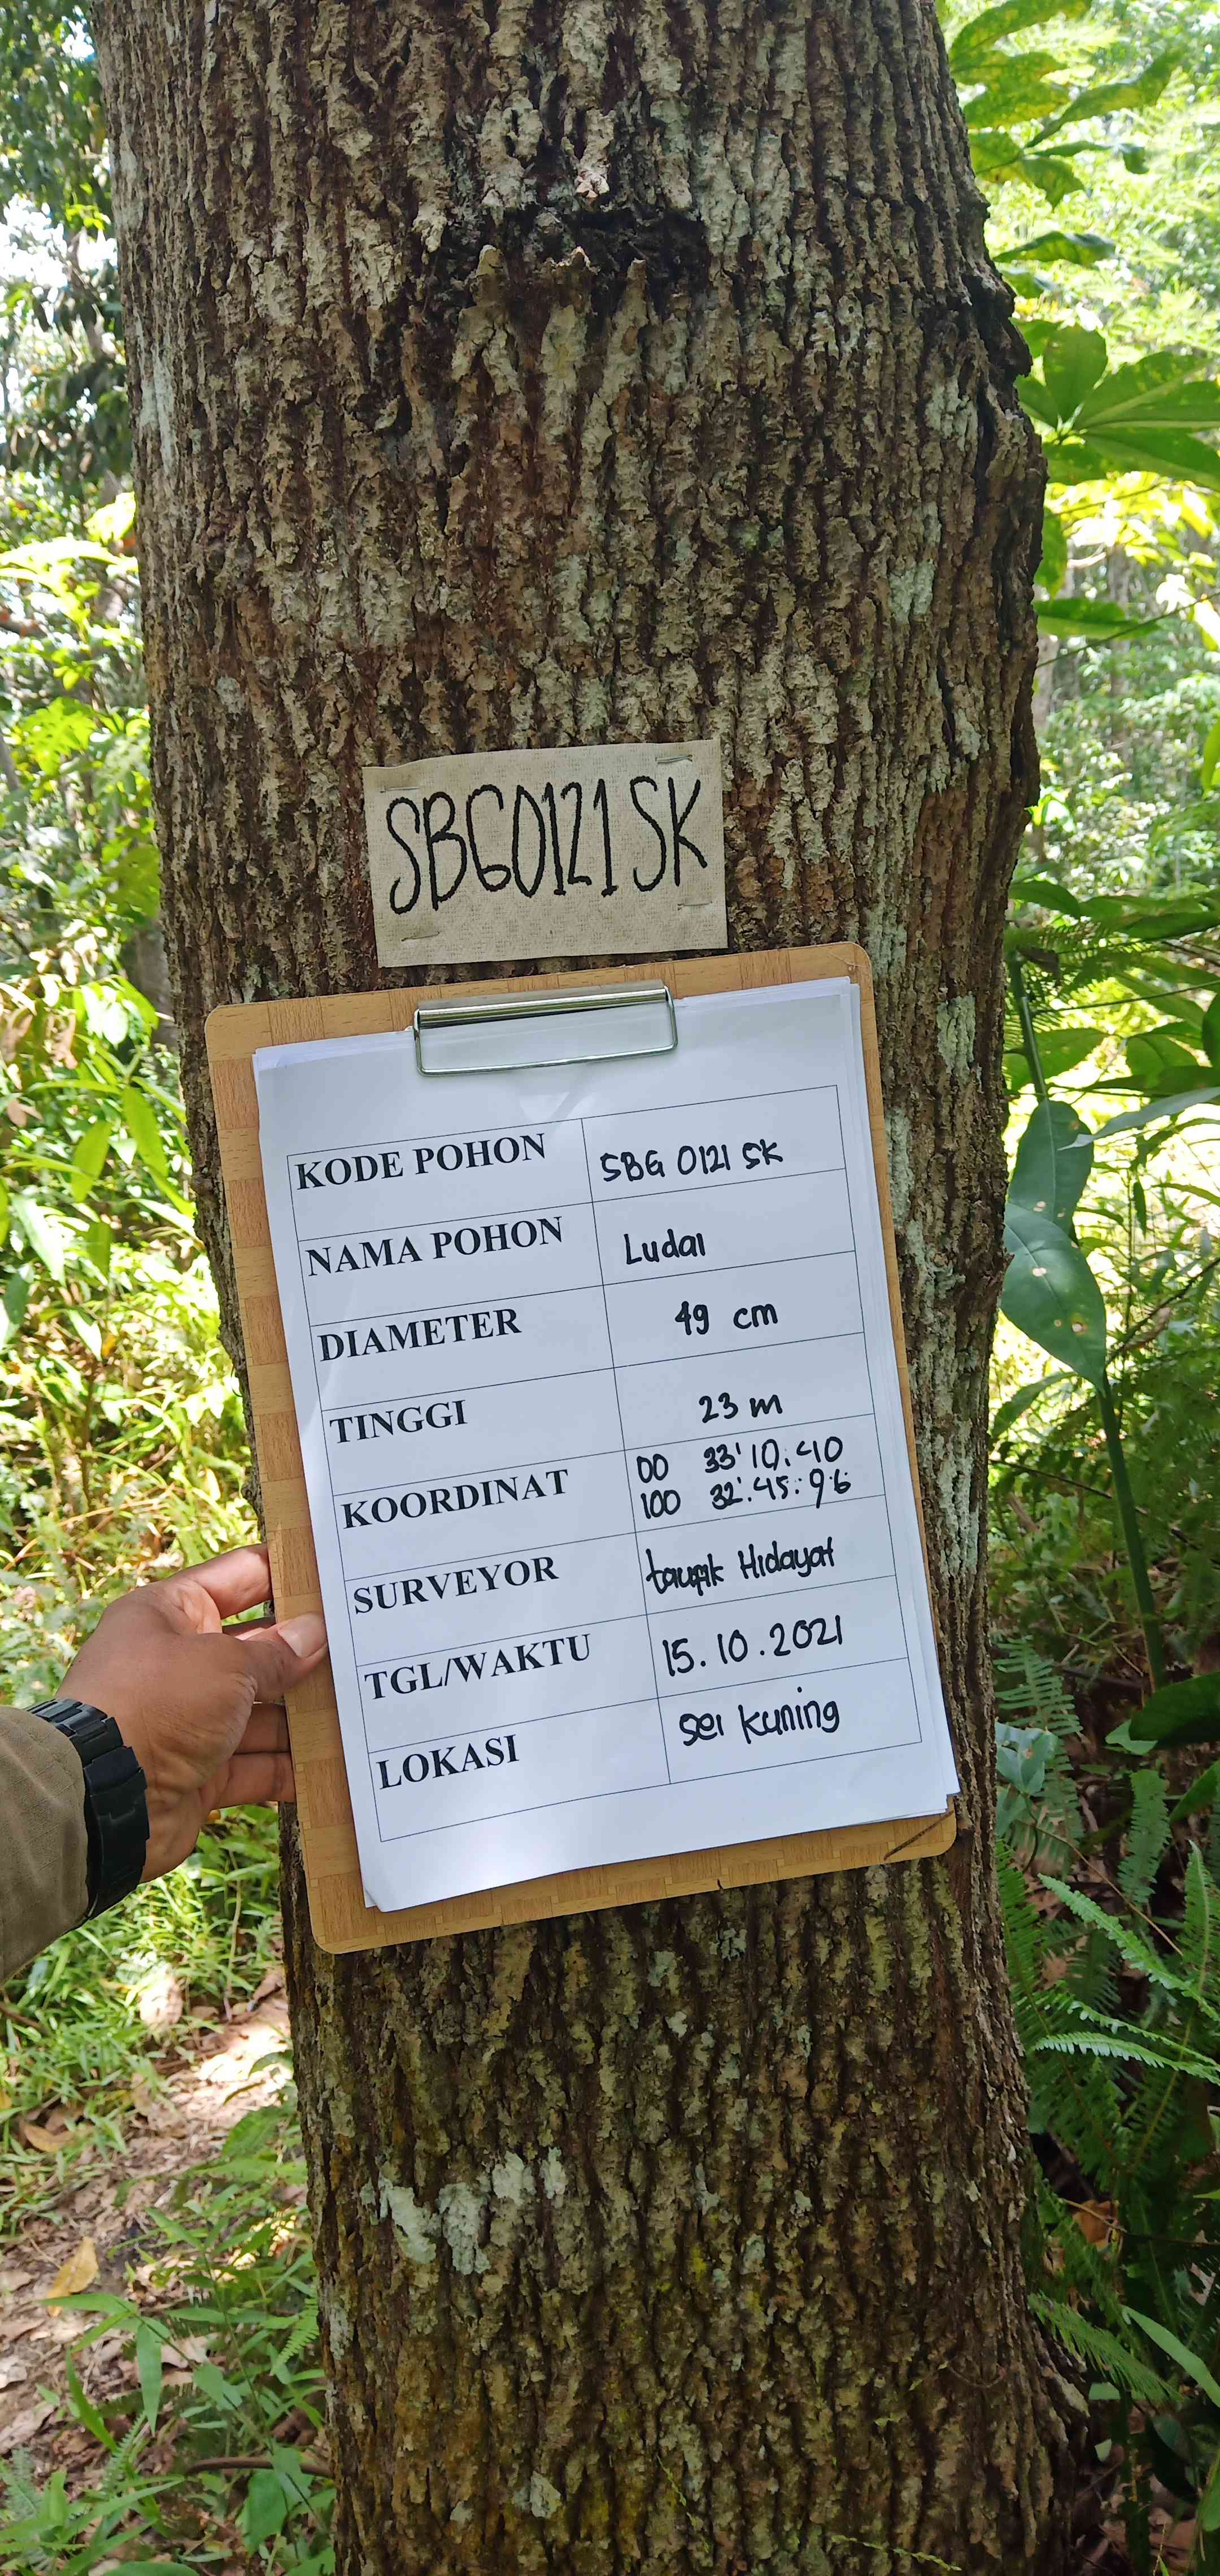 SBG0121SK
KODE POHON SBG 0121 SK
NAMA POHON Ludai
DIAMETER 49 cm
TINGGI 23 m
KOORDINAT 00 33' 10.40
100 32'.45.96
SURVEYOR taufik Hidayat
TGL/WAKTU 15.10.2021
LOKASI sei kuning